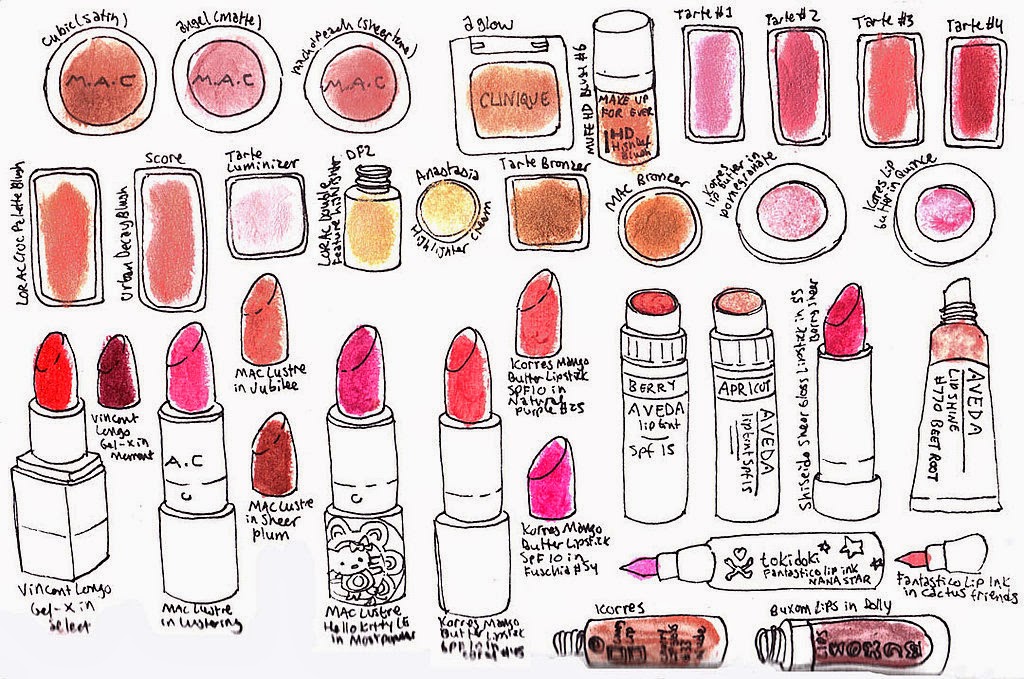 Cubic (satin)
M.A.C
angel (matte)
M.A.C
(sheertone)
M.A.C
a glow
CLINIQUE
MUFE HD Blush #6
MAKE UP
FOR EVER
HD
Blush
Tarte #1
Tarte #2
Tarte #3
Tarte #4
LORAC Croc Palette Blush
Score
Urban Decay Blush
Tarte
Luminizer
DF2
LORAC Double
Feature highlighter
Anastasia
Highlighter Cream
Tarte Bronzer
MAC Bronzer
Korres
lip butter in
pomegranate
Korres Lip
butter in Quince
MAC Lustre
in Jubilee
Korres Mango
Butter Lipstick
SPF10 in
Natural
Purple #25
BERRY
AVEDA
lip tint
Spf 15
APRICUT
AVEDA
liptint Spf 15
Shiseido Sheer Gloss Lipstick in S5
Berry Sheer
AVEDA
LIP SHINE
#770 BEET ROOT
Vincent
Longo
Gel-X in
A.C
C
MAC Lustre
in Sheer
plum
C
Korres Mango
Butter Lipstick
SPF 10 in
Fuschia #54
Vincent Longo
Gel-X in
Select
MAC Lustre
in Lustering
MAC Lustre
Hello Kitty LE
in Most popular
Korres Mango
Butter Lipstick
SPF 10 in
tokidoki
Fantastico lip ink
NANA STAR
Fantastico Lip Ink
in Cactus friends
Korres
Buxom Lips in Dolly
LIPS